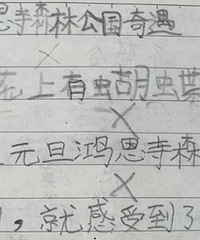 思寺森林公园奇遇
花上有虫胡虫蝶
元旦鸿思寺森
，就感受到了